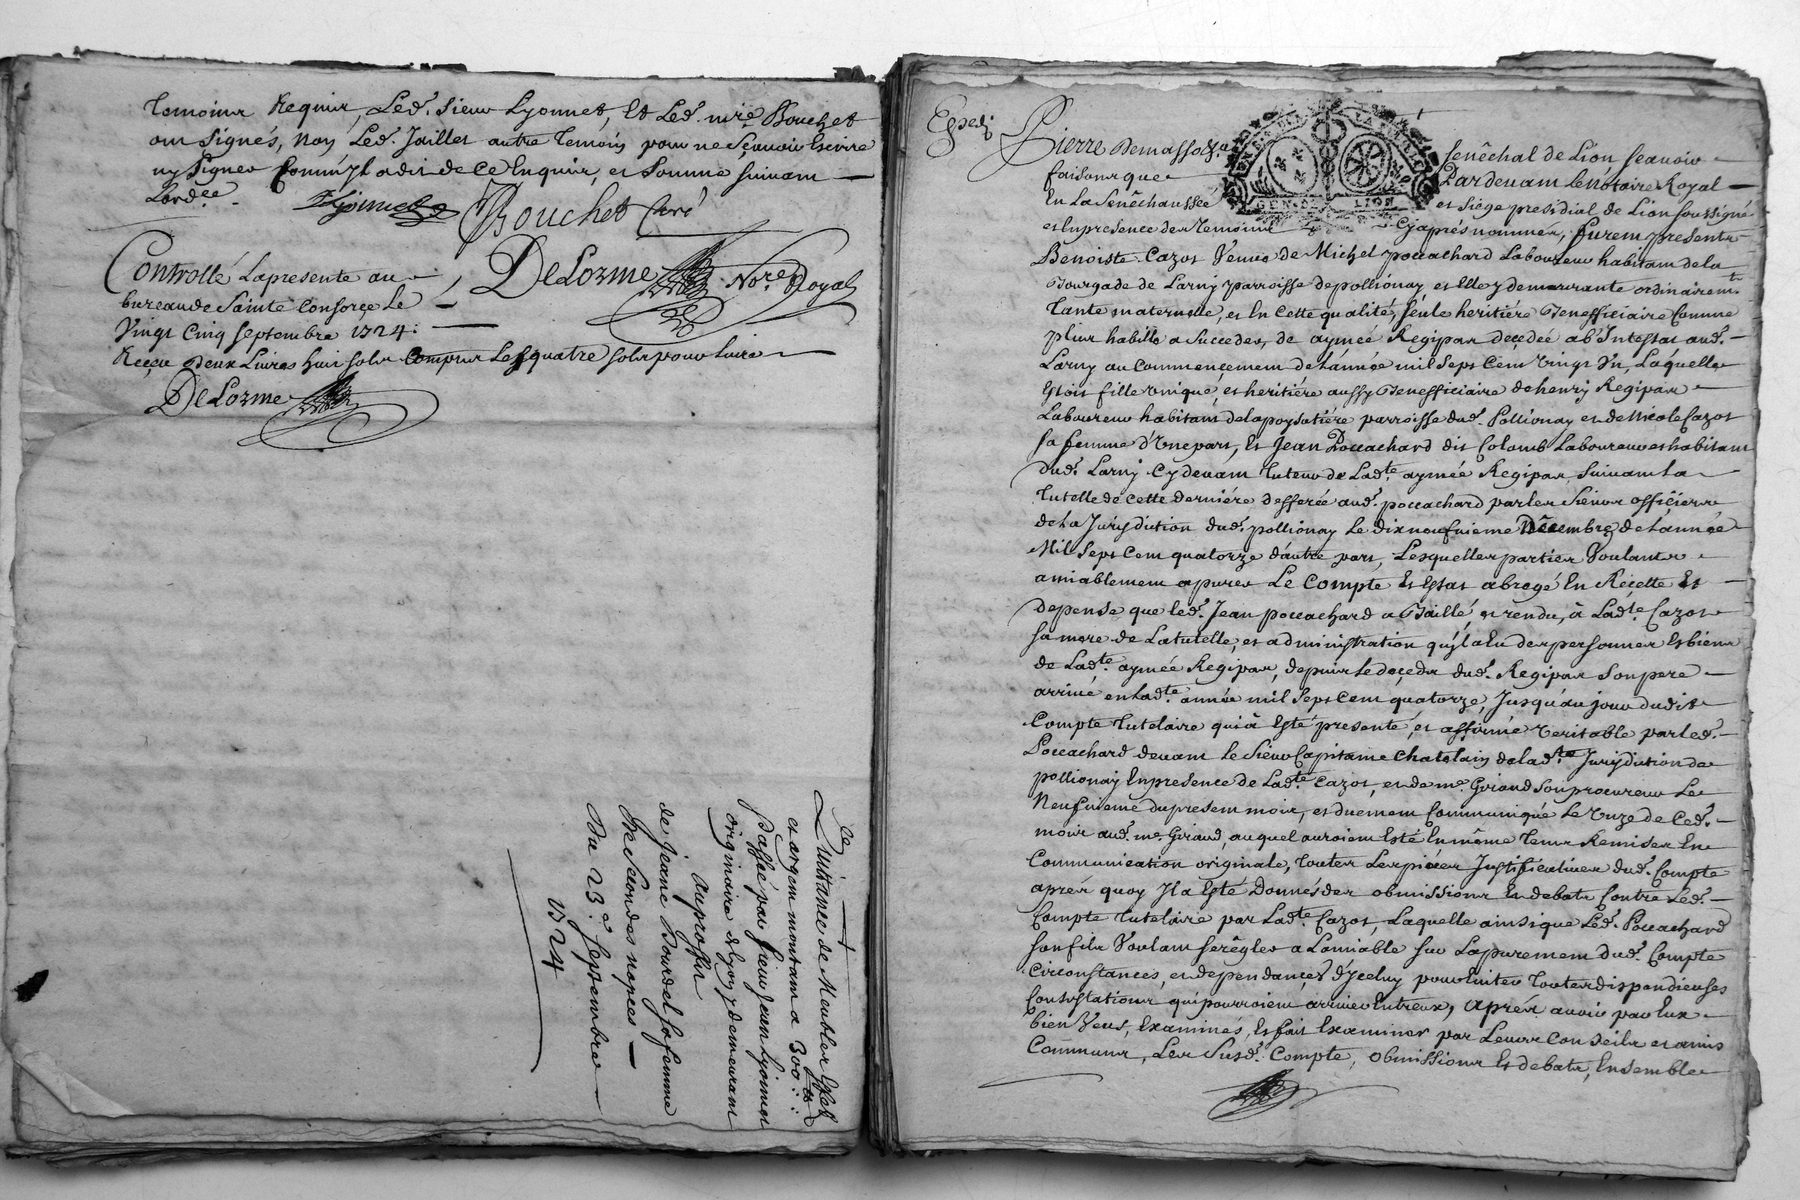 temoins Requis, Led. Sieur Lyonnet, Et Led. mre Bouchet
ont signés, Non Led. Jaillet autre temoin pour ne sçavoir Escrire
ny signer Comm'Jl a dit de ce Enquis, et somme suivant
Lord.ce
Lyonnet Bouchet Curé
DeLorme No.re Royal
Controllé Lapresente au
bureau de Sainte Consorçe Le
Vingt Cinq septembre 1724.
Reçeu Deux Livres huit sols Compris Les quatre sols pour Livre
DeLorme
Quittance de Meubles Effets
et argent montant a 300
Passée par sieur Jean Lyonnet
originaire de Lyon y demeurant
Auproffit
de Jeane Bourdel sa femme
En secondes nopces
Du 23.e septembre
1724
Exped.
Pierre Demassolza senêchal de Lion sçavoir
faisons que Pardevant Le Notaire Royal
En La senêchaussée et siege presidial de Lion soussigné
et Enpresence des temoins Cy aprés nommes, furent presents
GEN. DE LION
Benoiste Cazot Veuve de Michel pocachard Laboureur habitant de la
Bourgade de Larny parroisse de pollionay et Elle y demeurante ordinairemt.
tante maternelle, et En cette qualité, seule heritiére Benefficiaire Comme
plus habille a succeder, de aymée Regipas deçedée ab'Intestat aud.
Larny au Commencement de L'année mil sept Cent vingt Un, Laquelle
Estoit fille Unique, et heritiére aussy Benefficiaire de henry Regipas
Laboureur habitant de la poysatiére parroisse dud. Pollionay et de Nicole Cazot
sa femme d'Une part, Et Jean Pocachard dit Colomb Laboureur et habitant
dud. Larny Cy devant tuteur de Lad.te aymée Regipas suivant La
tutelle de cette derniére defferée aud. pocachard par les sieurs officiers
de La Jurisdiction dud. pollionay Le dix neufvieme Décembre de L'année
Mil sept Cent quatorze d'autre part, Lesquelles parties Voulants
amiablement apurer Le Compte Et Estat abregé En Recette Et
depense que led. Jean pocachard a Baillé, et rendu, à Lad.te Cazot
sa mere de La tutelle, et administration qu'il a Eu des personnes Et biens
de Lad.te aymée Regipas, depuis Le deçeds dud. Regipas son pere
arrivé en Lad.te année mil sept Cent quatorze, Jusqu'au jour dudit
Compte tutelaire qui à Esté presenté, et affirmé Veritable par led.
Pocachard devant Le sieur Capitaine Chatelain de lad.te Jurisdiction de
pollionay Enpresence de Lad.te Cazot, et de me. Giraud son procureur Le
Neufvieme du present mois, et duement Communiqué Le Unze de Ced.
mois aud. me. Giraud, auquel auroient Esté En même tems Remises En
Communication originale, toutes Les piéces Justificatives dud. Compte
aprés quoy Jl a Esté donnés des obmissions Et debats Contre Led.
Compte tutelaire par Lad.te Cazot, Laquelle ainsi que Led. Pocachard
son fils Voulant se régler a L'amiable sur L'apurement dud. Compte
Circonstances, et dependançes d'yceluy pour Eviter toutes dispendieuses
Contestations qui pourroient arriver Entreux, aprés avoir par Eux
bien Veus, Examinés, Et fait Examiner par Leurs Conseils et amis
Communs, Les susd. Compte, obmissions Et debats, Ensemble